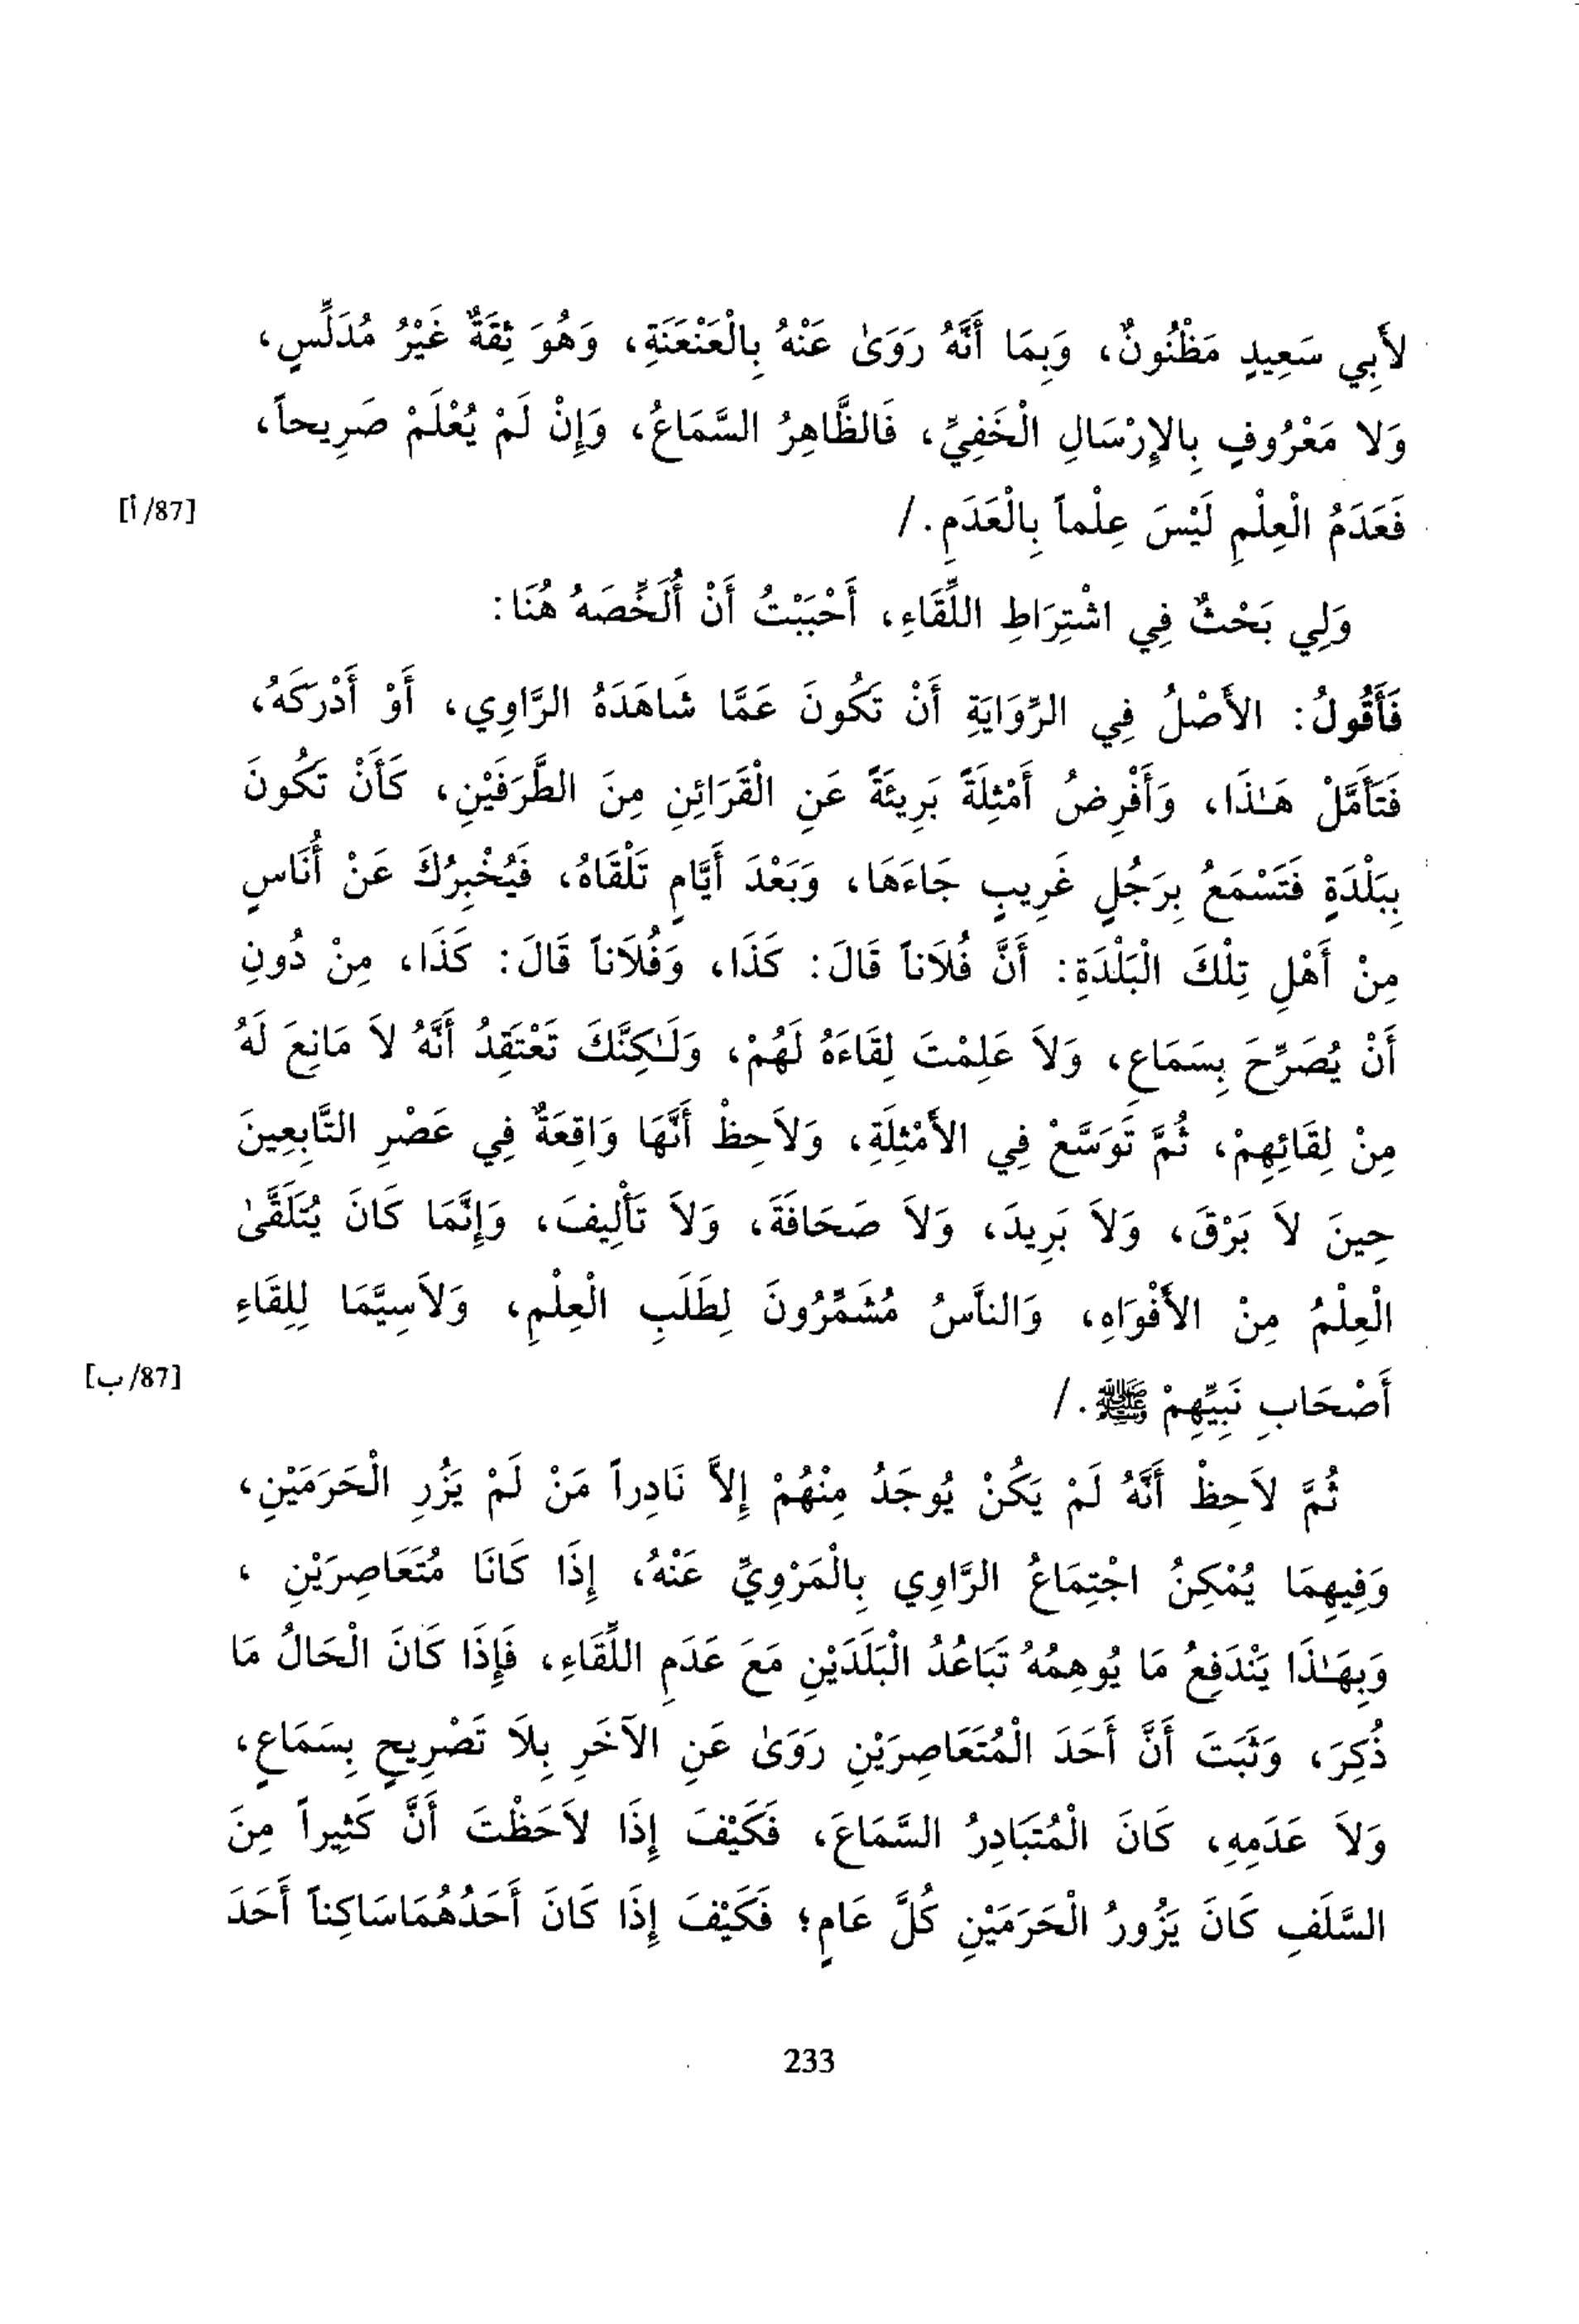 لأَبِي سَعِيدٍ مَظْنُونٌ، وَبِمَا أَنَّهُ رَوَىٰ عَنْهُ بِالْعَنْعَنَةِ، وَهُوَ ثِقَةٌ غَيْرُ مُدَلِّسٍ،
وَلا مَعْرُوفٍ بِالإِرْسَالِ الْخَفِيِّ، فَالظَّاهِرُ السَّمَاعُ، وَإِنْ لَمْ يُعْلَمْ صَرِيحاً،
فَعَدَمُ الْعِلْمِ لَيْسَ عِلْماً بِالْعَدَمِ. / [87/أ]
وَلِي بَحْثٌ فِي اشْتِرَاطِ اللِّقَاءِ، أَحْبَبْتُ أَنْ أُلَخِّصَهُ هُنَا:
فَأَقُولُ: الأَصْلُ فِي الرِّوَايَةِ أَنْ تَكُونَ عَمَّا شَاهَدَهُ الرَّاوِي، أَوْ أَدْرَكَهُ،
فَتَأَمَّلْ هَـٰذَا، وَأَفْرِضُ أَمْثِلَةً بَرِيئَةً عَنِ الْقَرَائِنِ مِنَ الطَّرَفَيْنِ، كَأَنْ تَكُونَ
بِبَلْدَةٍ فَتَسْمَعُ بِرَجُلٍ غَرِيبٍ جَاءَهَا، وَبَعْدَ أَيَّامٍ تَلْقَاهُ، فَيُخْبِرُكَ عَنْ أُنَاسٍ
مِنْ أَهْلِ تِلْكَ الْبَلْدَةِ: أَنَّ فُلَاناً قَالَ: كَذَا، وَفُلَاناً قَالَ: كَذَا، مِنْ دُونِ
أَنْ يُصَرِّحَ بِسَمَاعٍ، وَلاَ عَلِمْتَ لِقَاءَهُ لَهُمْ، وَلَـٰكِنَّكَ تَعْتَقِدُ أَنَّهُ لاَ مَانِعَ لَهُ
مِنْ لِقَائِهِمْ، ثُمَّ تَوَسَّعْ فِي الأَمْثِلَةِ، وَلاَحِظْ أَنَّهَا وَاقِعَةٌ فِي عَصْرِ التَّابِعِينَ
حِينَ لاَ بَرْقَ، وَلاَ بَرِيدَ، وَلاَ صَحَافَةَ، وَلاَ تَأْلِيفَ، وَإِنَّمَا كَانَ يُتَلَقَّىٰ
الْعِلْمُ مِنْ الأَفْوَاهِ، وَالنَّاسُ مُشَمِّرُونَ لِطَلَبِ الْعِلْمِ، وَلاَسِيَّمَا لِلِقَاءِ
أَصْحَابِ نَبِيِّهِمْ ﷺ. / [87/ب]
ثُمَّ لاَحِظْ أَنَّهُ لَمْ يَكُنْ يُوجَدُ مِنْهُمْ إِلاَّ نَادِراً مَنْ لَمْ يَزُرِ الْحَرَمَيْنِ،
وَفِيهِمَا يُمْكِنُ اجْتِمَاعُ الرَّاوِي بِالْمَرْوِيِّ عَنْهُ، إِذَا كَانَا مُتَعَاصِرَيْنِ ،
وَبِهَـٰذَا يَنْدَفِعُ مَا يُوهِمُهُ تَبَاعُدُ الْبَلَدَيْنِ مَعَ عَدَمِ اللِّقَاءِ، فَإِذَا كَانَ الْحَالُ مَا
ذُكِرَ، وَثَبَتَ أَنَّ أَحَدَ الْمُتَعَاصِرَيْنِ رَوَىٰ عَنِ الآخَرِ بِلاَ تَصْرِيحٍ بِسَمَاعٍ،
وَلاَ عَدَمِهِ، كَانَ الْمُتَبَادِرُ السَّمَاعَ، فَكَيْفَ إِذَا لاَحَظْتَ أَنَّ كَثِيراً مِنَ
السَّلَفِ كَانَ يَزُورُ الْحَرَمَيْنِ كُلَّ عَامٍ؛ فَكَيْفَ إِذَا كَانَ أَحَدُهُمَاسَاكِناً أَحَدَ
233